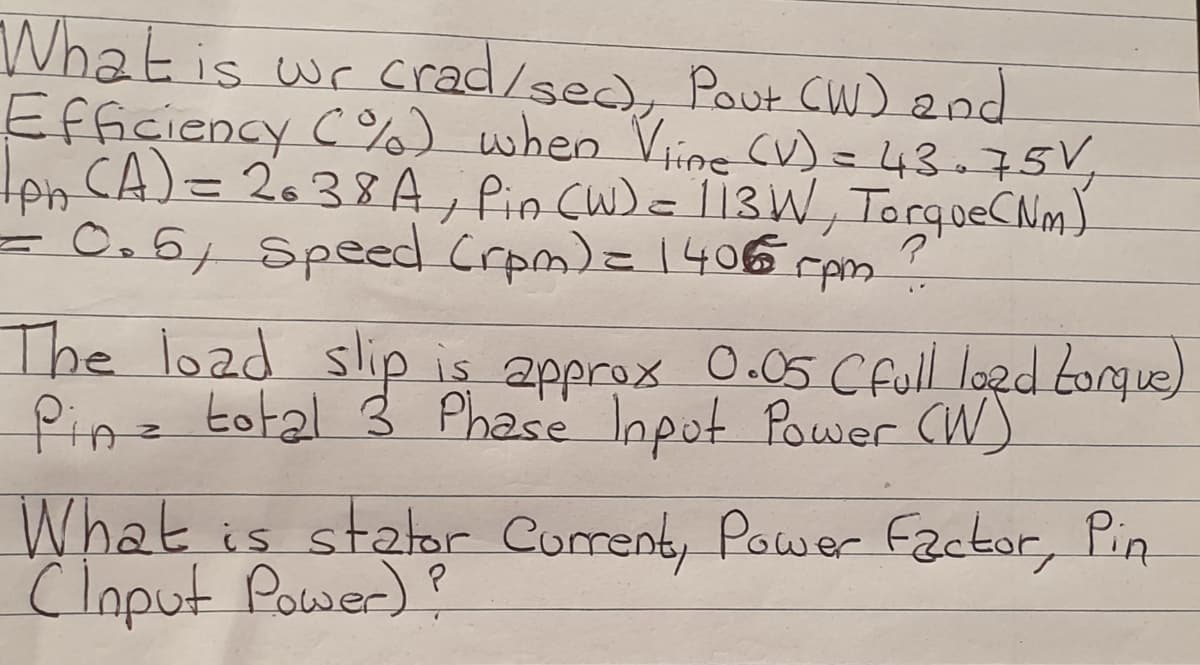 What is wr (rad/sec), Pout (W) and
Efficiency (%) when Vline (V) = 43.75V,
Iph (A) = 2.38A, Pin (W) = 113W, Torque(Nm)
= 0.5, speed (rpm) = 1406 rpm ?
The load slip is approx 0.05 (full load torque)
Pin = total 3 Phase Input Power (W)
What is stator Current, Power Factor, Pin
(Input Power)?